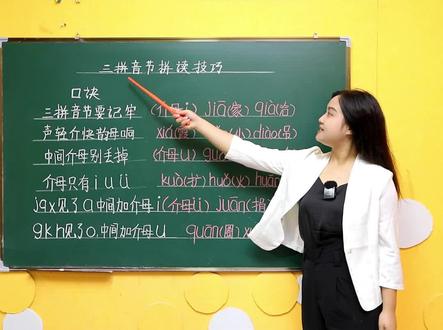 三拼音节拼读技巧
口诀
三拼音节要记牢 (介母i) jiā(家) qià(恰)
声轻介快韵母响 xiá(霞) diào(吊)
中间介母别丢掉 (介母u)
介母只有 i u ü kuò(扩) huǒ(火) huān
jqx见了a中间加介母i (介母ü) juān(捐)
gkh见了o中间加介母u quān(圈)